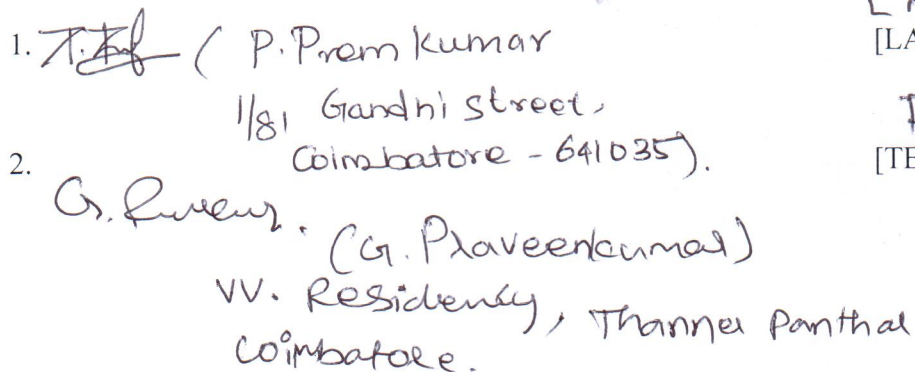 1. ( P. Prem kumar
[LA
1/81 Gandhi street,
Coimbatore - 641035).
2.
[TE
G.
(G. Praveenkumar)
VV. Residency, Thanner Panthal
Coimbatore.